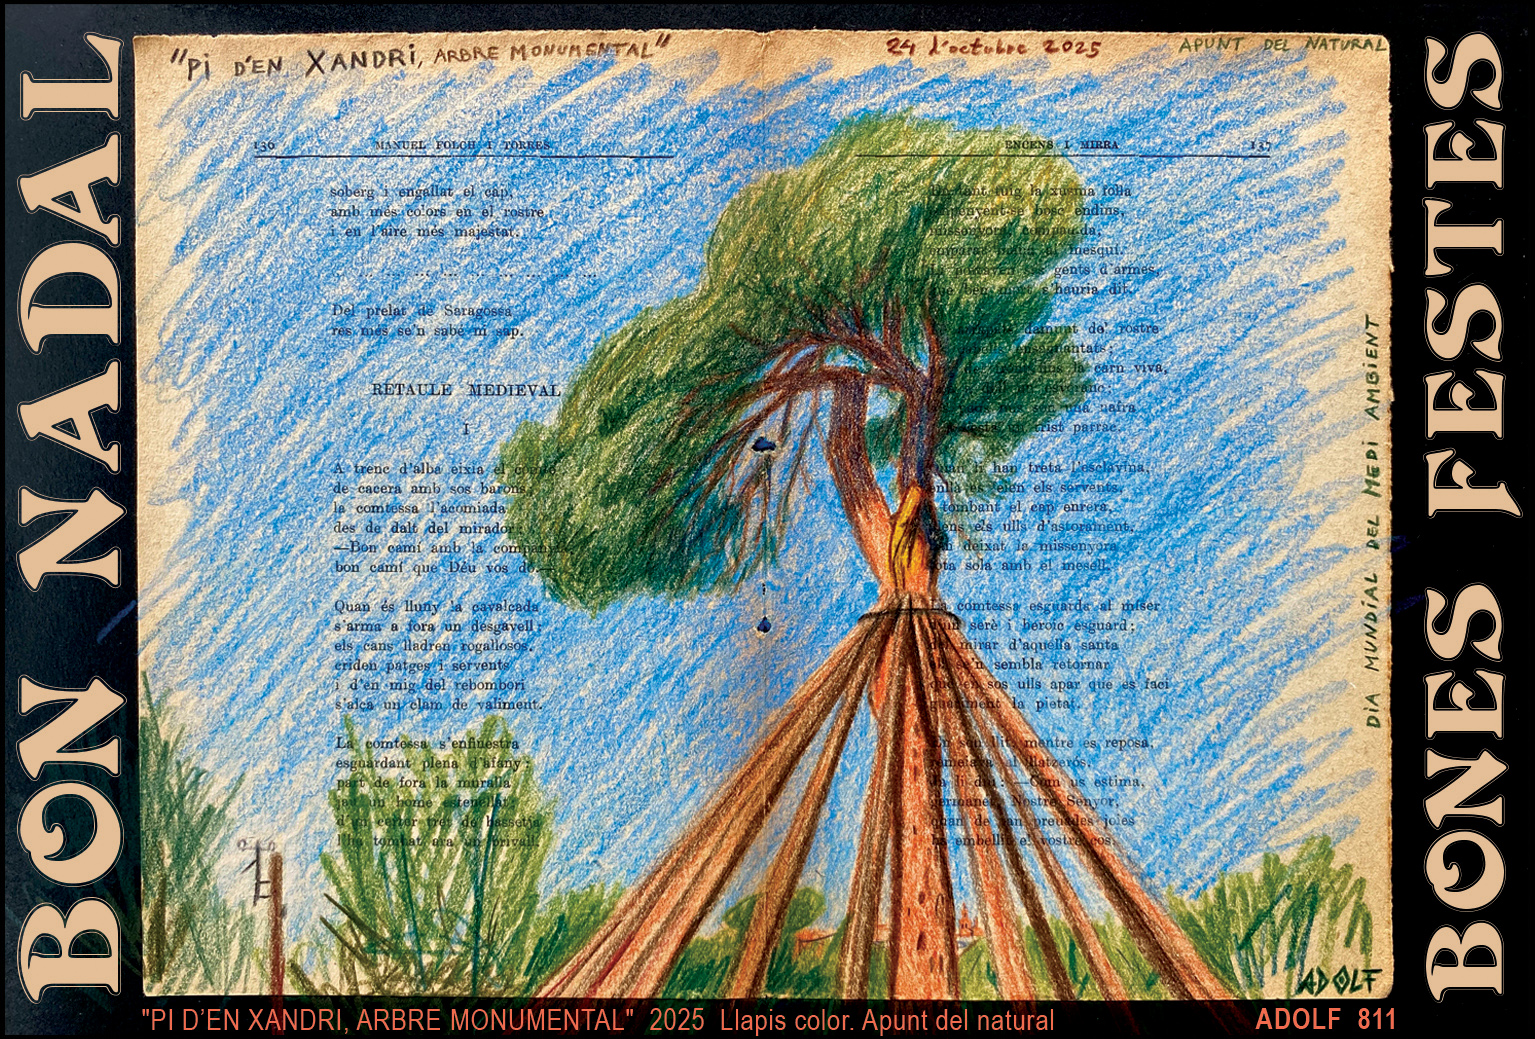 BON NADAL
"Pi D'EN XANDRI, ARBRE MONUMENTAL"
24 d'octubre 2025
APUNT DEL NATURAL
136 MANUEL FOLCH I TORRES
soberg i engallat el cap,
amb més colors en el rostre
i en l'aire més majestat.
Del prelat de Saragossa
res més se'n sabé ni sap.
RETAULE MEDIEVAL
I
A trenc d'alba eixia el comte
de cacera amb sos barons,
la comtessa l'acomiada
des de dalt del mirador:
—Bon camí amb la companyia
bon camí que Déu vos do.—
Quan és lluny la cavalcada
s'arma a fora un desgavell:
els cans lladren rogallosos,
criden patges i servents
i d'en mig del rebombori
s'alça un clam de valiment.
La comtessa s'enfinestra
esguardant plena d'afany:
part de fora la muralla
jau un home estenellat:
d'un certer tret de bassetja
l'ha tombat ara un brivall.
ENCENS I MIRRA 137
tant fuig la xusma folla
bosc endins,
missenyora
mesquí.
gents d'armes
s'hauria dit.
damunt del rostre
la carn viva,
són una nafra
trist parrac.
Quan li han treta l'esclavina,
enllà es veien els servents,
tombant el cap enrera,
plens els ulls d'astorament,
deixat la missenyora
tota sola amb el mesell.
La comtessa esguarda al miser
amb serè i heroic esguard;
del mirar d'aquella santa
se'n sembla retornar
que en sos ulls apar que es faci
la pietat.
En son llit, mentre es reposa,
al llatzerós,
li diu: —Com us estima,
germanet, Nostre Senyor,
quan de tan preuades joies
ha embellit el vostre cos.
DiA MUNDIAL DEL MEDI AMBIENT
ADOLF
BONES FESTES
"PI D'EN XANDRI, ARBRE MONUMENTAL" 2025 Llapis color. Apunt del natural
ADOLF 811